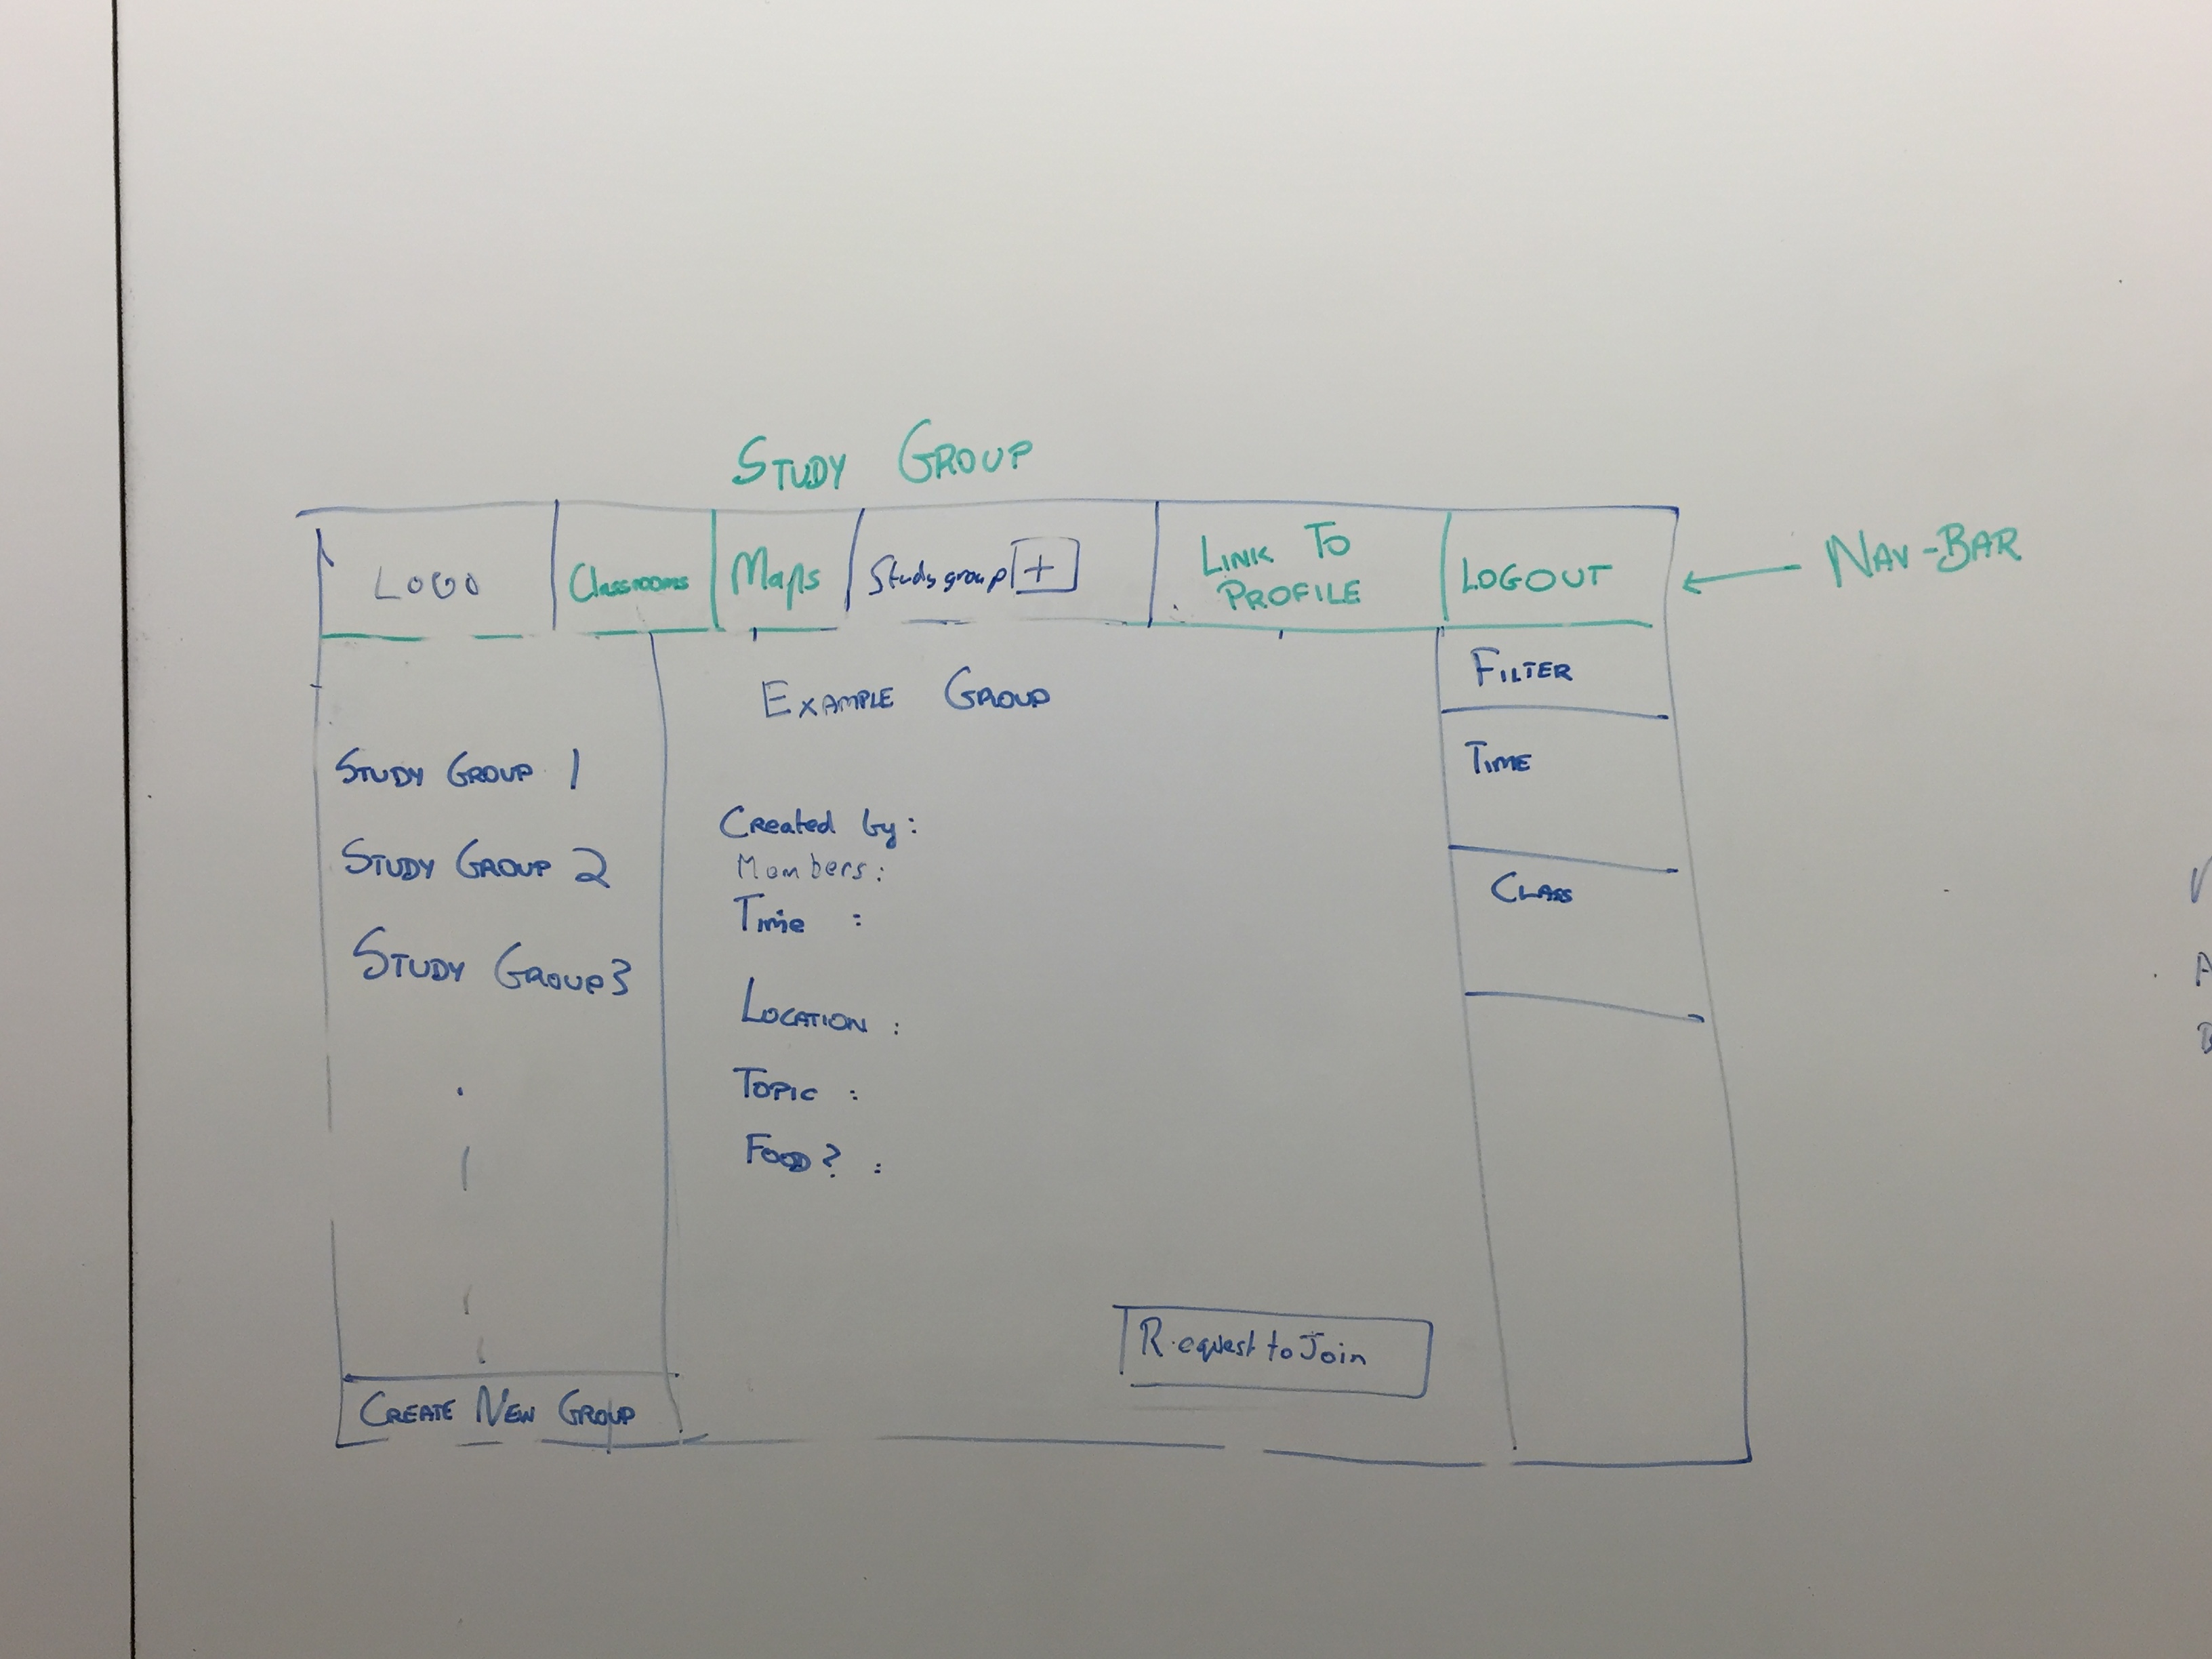 STUDY GROUP
LOGO
Classrooms
Maps
Studygroup +
LINK TO
PROFILE
LOGOUT
NAV-BAR
STUDY GROUP 1
STUDY GROUP 2
STUDY GROUP 3
CREATE NEW GROUP
EXAMPLE GROUP
Created by:
Members:
Time :
LOCATION :
TOPIC :
FOOD? :
Request to Join
FILTER
TIME
CLASS